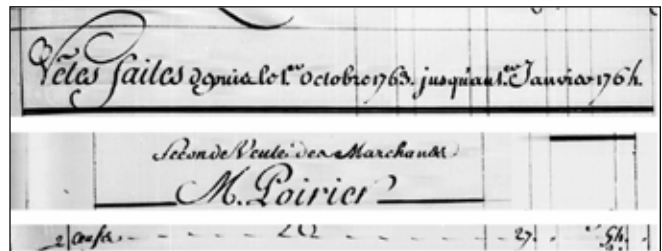 Vẽtes faites depuis le 1.er Octobre 1763. jusqu'au 1.er Janvier 1764.
Seconde Vente des Marchands
M. Poirier
2 27. 54.